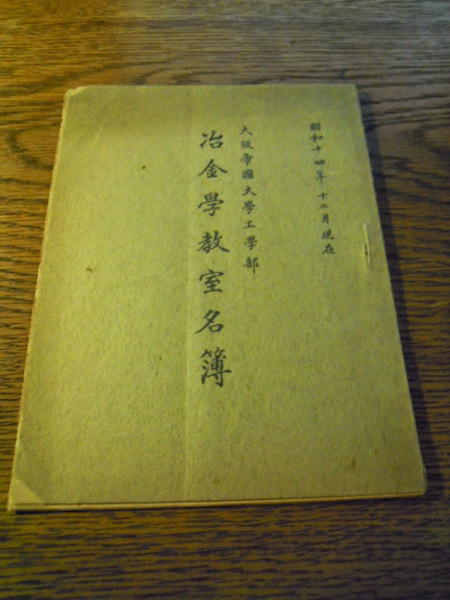 昭和十四年十二月現在
大阪帝國大學工學部
冶金學教室名簿